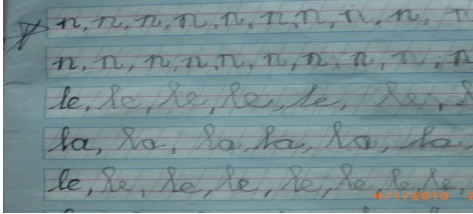 n, n, n, n, n, n, n, n, n, n
n, n, n, n, n, n, n, n, n, n
le, le, le, le, le, le,
la, la, la, la, la, la,
le, le, le, le, le, le, le, le,